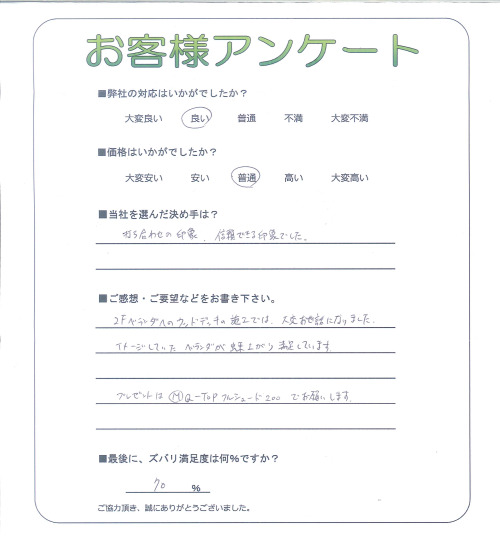 お客様アンケート
■弊社の対応はいかがでしたか？
大変良い 良い 普通 不満 大変不満
■価格はいかがでしたか？
大変安い 安い 普通 高い 大変高い
■当社を選んだ決め手は？
打ち合わせの印象、信頼できる印象でした。
■ご感想・ご要望などをお書き下さい。
2Fベランダへのウッドデッキの施工では、大変お世話になりました。
イメージしていたベランダが出来上がり満足しています。
プレゼントは Ⓜ Q-TOP フルシェード200 でお願いします。
■最後に、ズバリ満足度は何%ですか？
90 %
ご協力頂き、誠にありがとうございました。